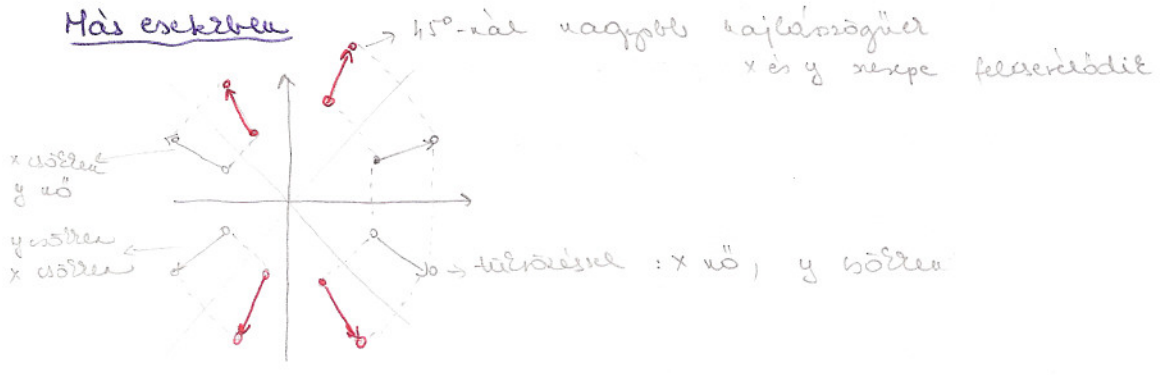 Más esetekben
45°-nál nagyobb hajlásszögűek
x és y szerepe felcserélődik
x csökken
y nő
y csökken
x csökken
→ tükrözéssel : x nő, y csökken